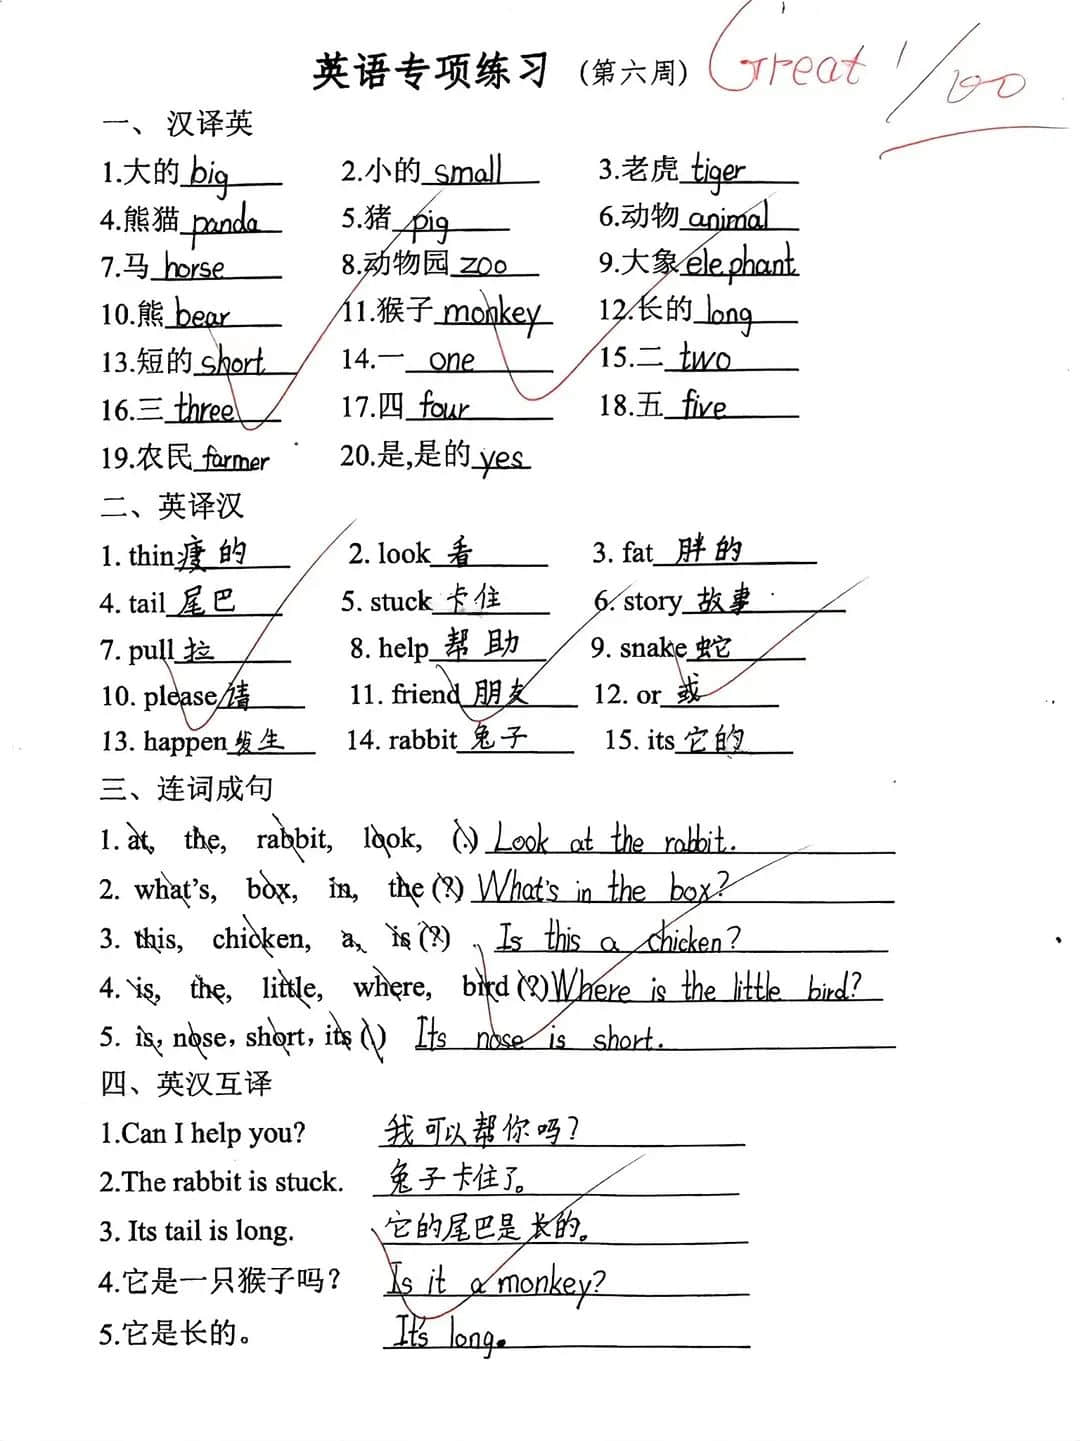 英语专项练习 (第六周) Great! 100
一、汉译英
1.大的 big 2.小的 small 3.老虎 tiger
4.熊猫 panda 5.猪 pig 6.动物 animal
7.马 horse 8.动物园 zoo 9.大象 elephant
10.熊 bear 11.猴子 monkey 12.长的 long
13.短的 short 14.一 one 15.二 two
16.三 three 17.四 four 18.五 five
19.农民 farmer 20.是,是的 yes
二、英译汉
1. thin 瘦的 2. look 看 3. fat 胖的
4. tail 尾巴 5. stuck 卡住 6. story 故事
7. pull 拉 8. help 帮助 9. snake 蛇
10. please 请 11. friend 朋友 12. or 或
13. happen 发生 14. rabbit 兔子 15. its 它的
三、连词成句
1. at, the, rabbit, look, (.) Look at the rabbit.
2. what's, box, in, the (?) What's in the box?
3. this, chicken, a, is (?) Is this a chicken?
4. is, the, little, where, bird (?) Where is the little bird?
5. is, nose, short, its (.) Its nose is short.
四、英汉互译
1.Can I help you? 我可以帮你吗?
2.The rabbit is stuck. 兔子卡住了。
3. Its tail is long. 它的尾巴是长的。
4.它是一只猴子吗? Is it a monkey?
5.它是长的。 It's long.